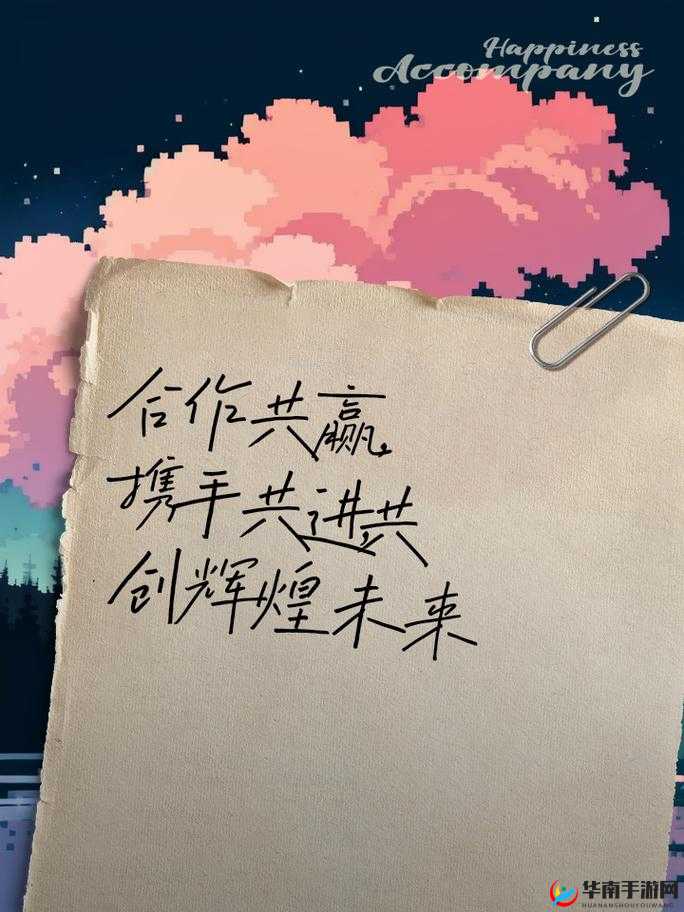 Happiness
Accompany
合作共赢,
携手共进,共
创辉煌未来
华南手游网
HUANANSHOUYOUWANG